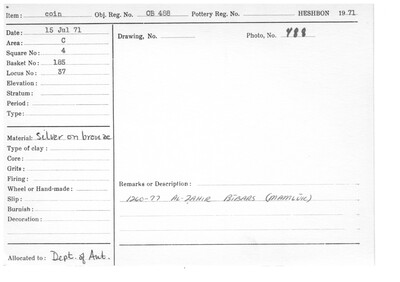 Item: coin Obj. Reg. No. OB 488 Pottery Reg. No. HESHBON 1971
Date: 15 Jul 71
Area: C
Square No: 4
Basket No: 185
Locus No: 37
Elevation:
Stratum:
Period:
Type:
Drawing, No.
Photo, No. 488
Material: Silver on bronze
Type of clay:
Core:
Grits:
Firing:
Wheel or Hand-made:
Slip:
Burnish:
Decoration:
Remarks or Description:
1260-77 AL-ZAHIR BIBARS (MAMLUK)
Allocated to: Dept. of Ant.